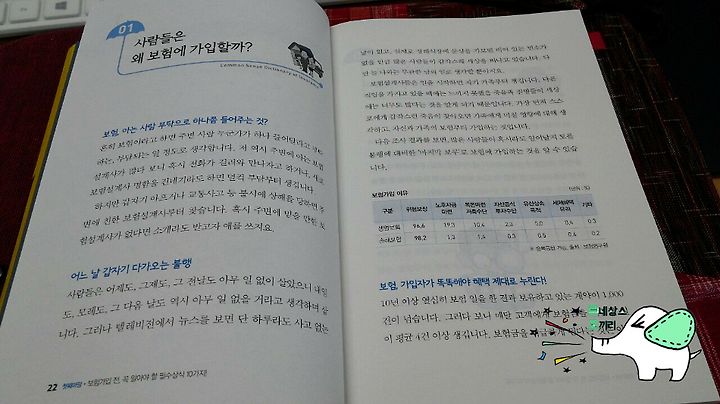 01
사람들은
왜 보험에 가입할까?
Common Sense Dictionary of Insurance
보험, 아는 사람 부탁으로 하나쯤 들어주는 것?
흔히 보험이라고 하면 주변 사람 누군가가 하나 들어달라고
하는, 부담되는 일 정도로 생각합니다. 저 역시 주변에 아는 보험
설계사가 많다 보니 혹시 전화가 걸려와 만나자고 하거나, 새로
보험설계사 명함을 건네기라도 하면 덜컥 부담부터 생깁니다.
하지만 갑자기 아프거나 교통사고 등 불시에 상해를 당하면 주
변에 친한 보험설계사부터 찾습니다. 혹시 주변에 믿을 만한 보
험설계사가 없다면 소개라도 받고자 애를 쓰지요.
어느 날 갑자기 다가오는 불행
사람들은 어제도, 그제도, 그 전날도 아무 일 없이 살았으니 내일
도, 모레도, 그 다음 날도 역시 아무 일 없을 거라고 생각하며 삽
니다. 그러나 텔레비전에서 뉴스를 보면 단 하루라도 사고 없는
22 첫째마당 · 보험가입 전, 꼭 알아야 할 필수상식 10가지!
날이 없고, 실제로 장례식장에 문상을 가보면 비어 있는 빈소가
없을 만큼 많은 사람들이 갑작스레 세상을 떠나고 있습니다. 다
만 늘 나와는 무관한 남의 일로 생각할 뿐이지요.
보험설계사들은 일을 시작하면 자기 가족부터 챙깁니다. 다른
직업을 가지고 있을 때에는 느끼지 못했던 죽음과 질병들이 세상
에는 너무도 많다는 것을 알게 되기 때문입니다. 가장 먼저 스스
로에게 갑작스런 죽음이 찾아오면 가족에게 미칠 영향에 대해 생
각하고, 자신과 가족의 보험부터 가입하는 것입니다.
다음 조사 결과를 보면, 많은 사람들이 혹시라도 일어날지 모를
불행에 대비한 '마지막 보루'로 보험에 가입하는 것을 알 수 있습
니다.
보험가입 이유 (단위 : %)
구분 위험보장 노후자금 마련 목돈마련 저축수단 자산증식 투자수단 유산상속 목적 세제혜택 유리 기타
생명보험 96.6 19.3 10.4 2.3 5.0 3.4 0.3
손해보험 98.2 1.3 1.4 0.3 0.5 0.4 0.2
※ 중복응답 가능, 출처 : 보험연구원
보험, 가입자가 똑똑해야 혜택 제대로 누린다!
10년 이상 열심히 보험 일을 한 결과 보유하고 있는 계약이 1,000
건이 넘습니다. 그러다 보니 매달 고객에게 보험금
이 평균 4건 이상 생깁니다. 보험금을
세상스
끼리